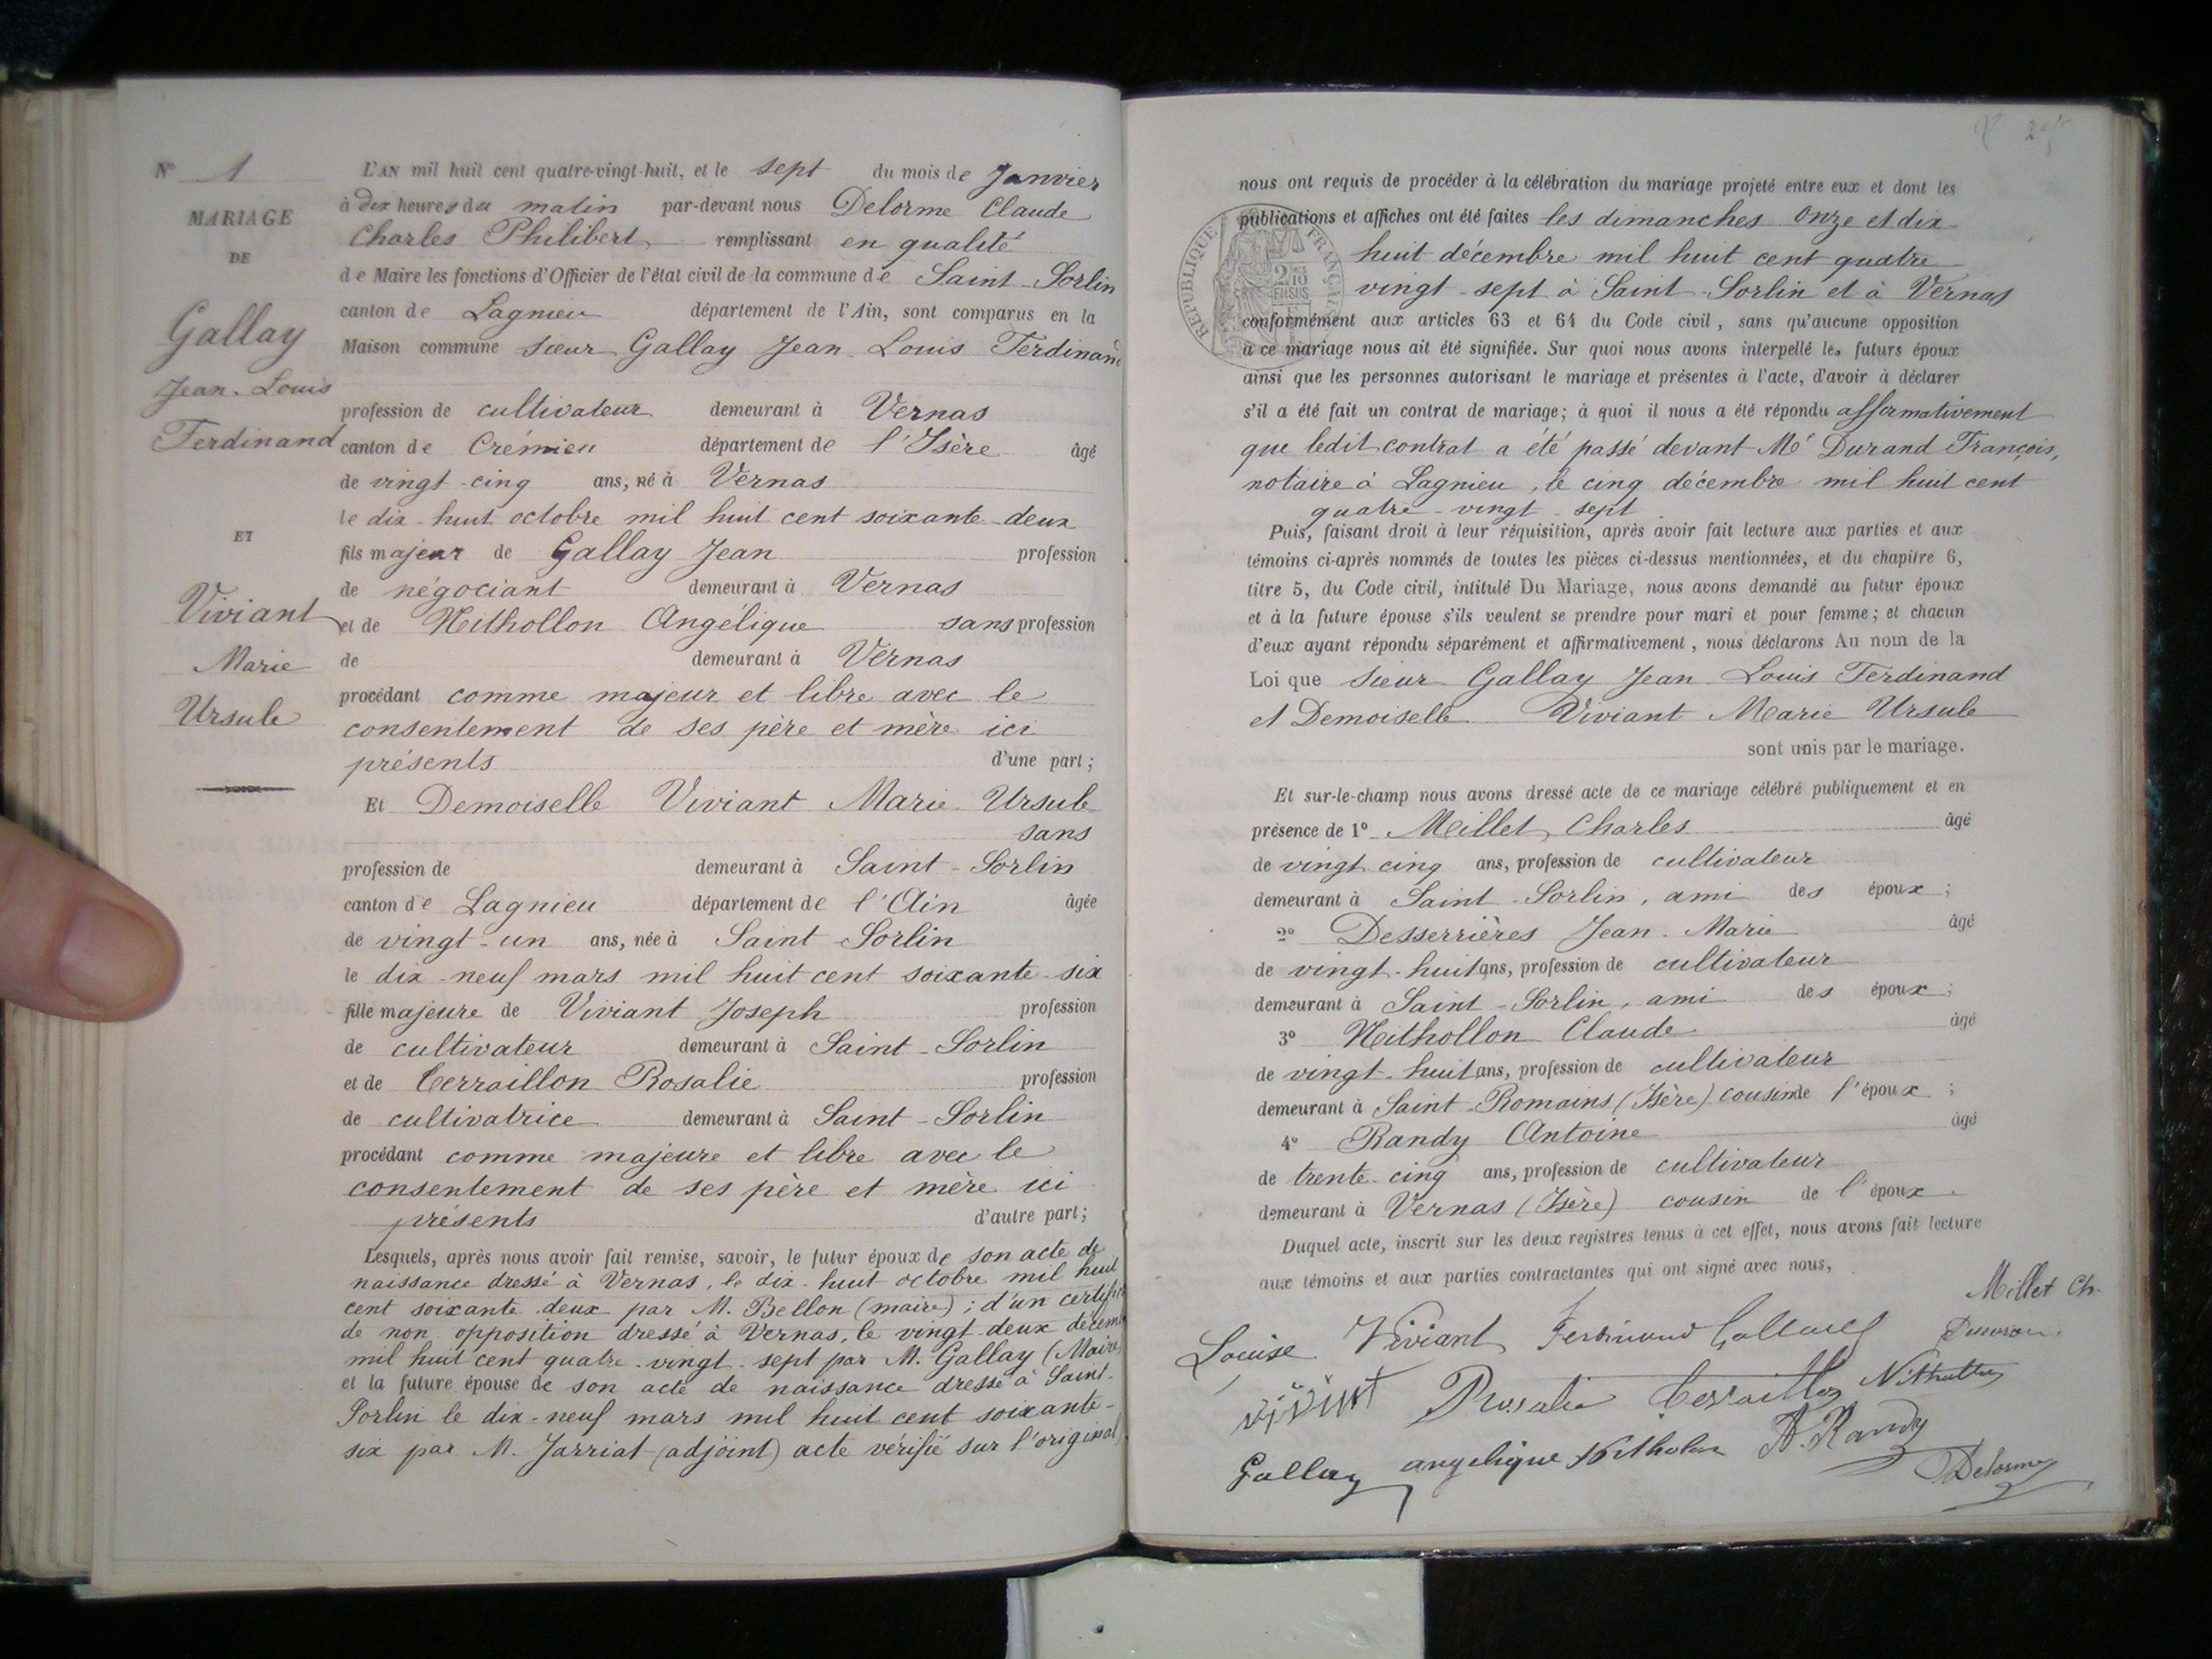 N° 1
MARIAGE
DE
Gallay
Jean-Louis
Ferdinand
ET
Viviant
Marie
Ursule
L'AN mil huit cent quatre-vingt-huit, et le sept du mois de Janvier
à dix heures du matin par-devant nous Delorme Claude
Charles Philibert remplissant en qualité
de Maire les fonctions d'Officier de l'état civil de la commune de Saint-Sorlin
canton de Lagnieu département de l'Ain, sont comparus en la
Maison commune sieur Gallay Jean-Louis Ferdinand
profession de cultivateur demeurant à Vernas
canton de Crémieu département de l'Isère âgé
de vingt-cinq ans, né à Vernas
le dix-huit octobre mil huit cent soixante-deux
fils majeur de Gallay Jean profession
de négociant demeurant à Vernas
et de Nithollon Angélique sans profession
de demeurant à Vernas
procédant comme majeur et libre avec le
consentement de ses père et mère ici
présents d'une part;
Et Demoiselle Viviant Marie-Ursule
sans
profession de demeurant à Saint-Sorlin
canton de Lagnieu département de l'Ain âgée
de vingt-un ans, née à Saint-Sorlin
le dix-neuf mars mil huit cent soixante-six
fille majeure de Viviant Joseph profession
de cultivateur demeurant à Saint-Sorlin
et de Cerraillon Rosalie profession
de cultivatrice demeurant à Saint-Sorlin
procédant comme majeure et libre avec le
consentement de ses père et mère ici
présents d'autre part;
Lesquels, après nous avoir fait remise, savoir, le futur époux de son acte de
naissance dressé à Vernas, le dix-huit octobre mil huit
cent soixante-deux par M. Bellon (maire); d'un certific
de non opposition dressé à Vernas, le vingt-deux décem
mil huit cent quatre-vingt-sept par M. Gallay (Maire)
et la future épouse de son acte de naissance dressé à Saint-
Sorlin le dix-neuf mars mil huit cent soixante-
six par M. Jarriat (adjoint) acte vérifié sur l'original
nous ont requis de procéder à la célébration du mariage projeté entre eux et dont les
publications et affiches ont été faites les dimanches onze et dix
huit décembre mil huit cent quatre
vingt-sept à Saint-Sorlin et à Vernas
conformément aux articles 63 et 64 du Code civil, sans qu'aucune opposition
à ce mariage nous ait été signifiée. Sur quoi nous avons interpellé les futurs époux
ainsi que les personnes autorisant le mariage et présentes à l'acte, d'avoir à déclarer
s'il a été fait un contrat de mariage; à quoi il nous a été répondu affirmativement
que ledit contrat a été passé devant Me Durand François,
notaire à Lagnieu, le cinq décembre mil huit cent
quatre-vingt-sept
Puis, faisant droit à leur réquisition, après avoir fait lecture aux parties et aux
témoins ci-après nommés de toutes les pièces ci-dessus mentionnées, et du chapitre 6,
titre 5, du Code civil, intitulé Du Mariage, nous avons demandé au futur époux
et à la future épouse s'ils veulent se prendre pour mari et pour femme; et chacun
d'eux ayant répondu séparément et affirmativement, nous déclarons Au nom de la
Loi que sieur Gallay Jean-Louis Ferdinand
et Demoiselle Viviant Marie Ursule
sont unis par le mariage.
Et sur-le-champ nous avons dressé acte de ce mariage célébré publiquement et en
présence de 1° Millet Charles âgé
de vingt cinq ans, profession de cultivateur
demeurant à Saint-Sorlin, ami des époux;
2° Desserrières Jean-Marie âgé
de vingt-huit ans, profession de cultivateur
demeurant à Saint-Sorlin, ami des époux;
3° Nithollon Claude âgé
de vingt-huit ans, profession de cultivateur
demeurant à Saint-Romains (Isère) cousin de l'époux;
4° Randy Antoine âgé
de trente-cinq ans, profession de cultivateur
demeurant à Vernas (Isère) cousin de l'époux.
Duquel acte, inscrit sur les deux registres tenus à cet effet, nous avons fait lecture
aux témoins et aux parties contractantes qui ont signé avec nous,
Millet Ch.
Louise Viviant Ferdinand Gallay
Rosalie Cerraillon
Gallay angelique A. Randy
Delorme
RÉPUBLIQUE FRANÇAISE